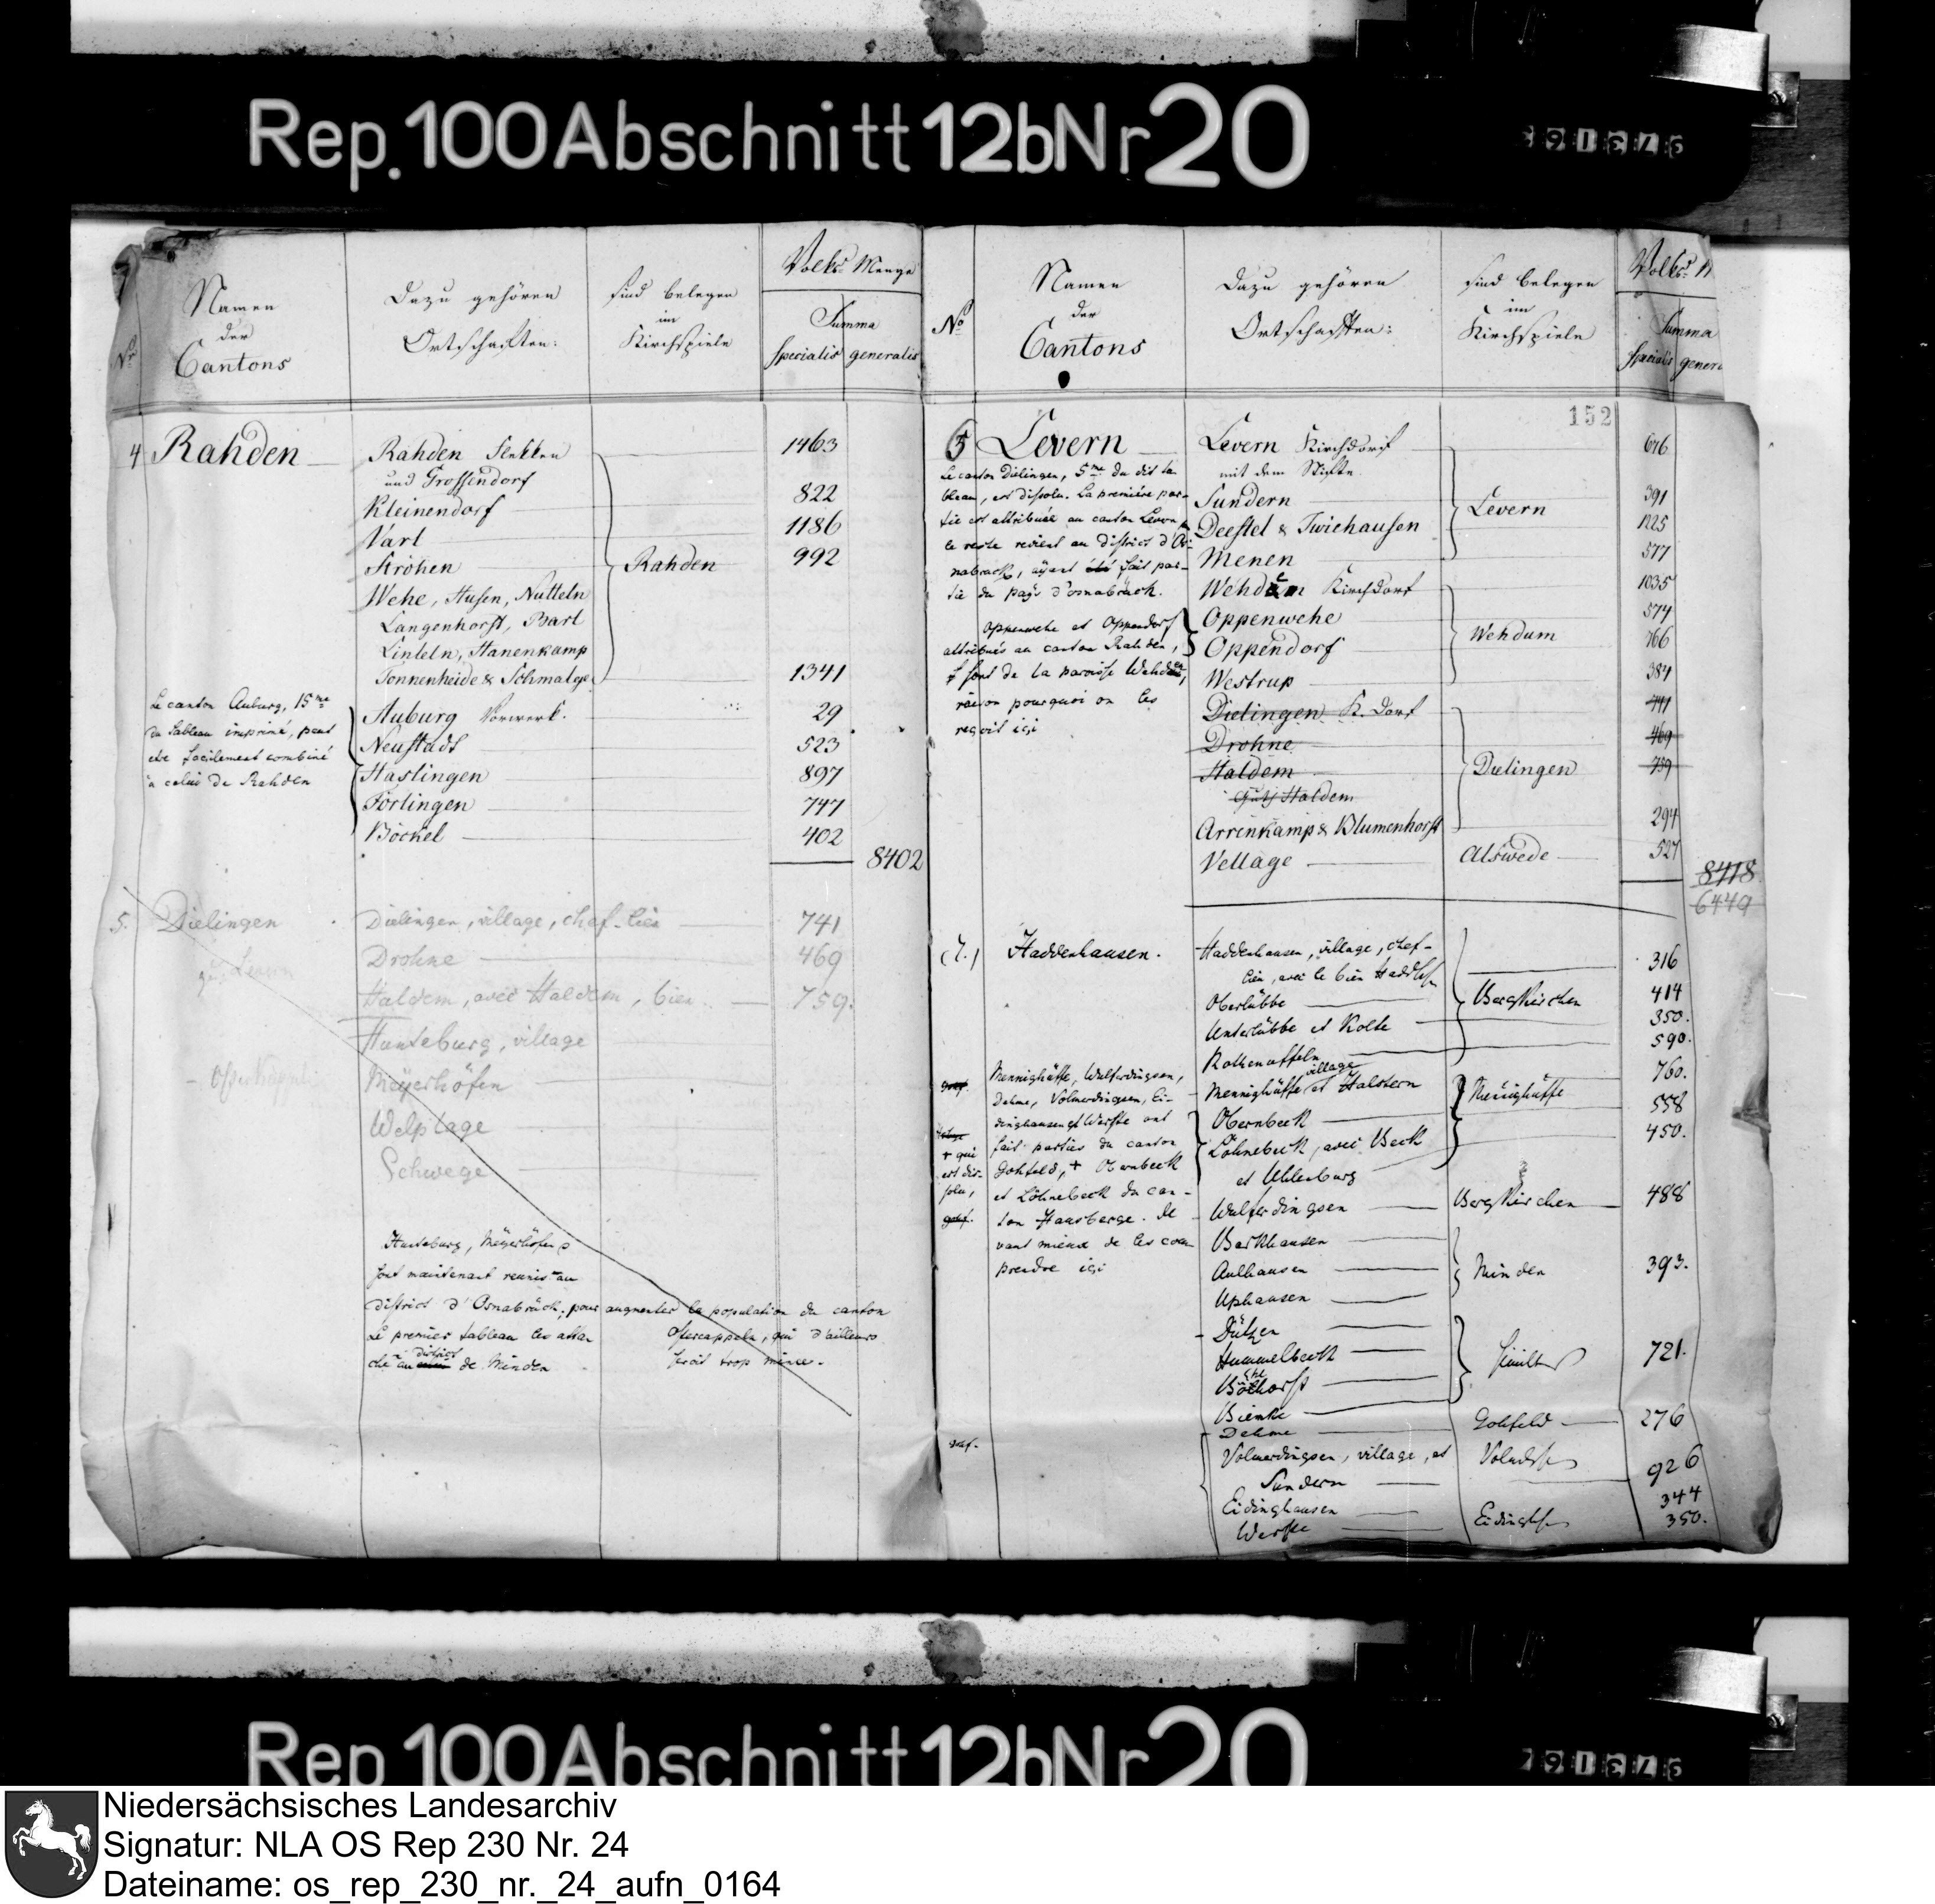 Rep.100Abschnitt12bNr20
No
Namen
der
Cantons
Dazu gehören
Ortschaften:
sind belegen
im
Kirchspiele
Volks Menge
Summa
specialis generalis
4 Rahden
Rahden Flekken 1463
und Grossendorf
Kleinendorf 822
Varl 1186
Ströhen 992
Rahden
Wehe, Husen, Nutteln
Langenhorst, Barl
Linteln, Hanenkamp
Tonnenheide & Schmalge 1341
Le canton Auburg, 15me
du tableau imprimé, peut
etre facilement combiné
à celui de Rahden
Auburg Vorwerk. 29
Neustadt 523
Haslingen 897
Förlingen 747
Böckel 402
8402
5. Dielingen
Dielingen, village, chef-lieu 741
Drohne 469
Haldem, avec Haldem, bien 759.
Hunteburg, village
Meyerhöfen
Welplage
Schwege
Hunteburg, Meyerhöfen
sont maintenant reunis au
district d'Osnabrück, pour augmenter la population du canton
Le premier tableau les atta- Ostercappeln, qui d'ailleurs
che au district de Minden seroit trop mince.
No
Namen
der
Cantons
Dazu gehören
Ortschaften:
sind belegen
im
Kirchspiele
Volks M
Summa
specialis gener
152
5 Levern
Levern Kirchdorf 676
mit dem Stifte
Sundern 391
Destel & Twiehausen 1225
Menen 577
Levern
Le canton Dielingen, 5me du dit ta
bleau, est dissolu. La première par-
tie est attribuée au canton Levern
le reste revient au district d'Os-
nabrück, ayant été fait par-
tie du pays d'Osnabrück.
Wehdem Kirchdorf 1035
Oppenwehe 574
Oppendorf 766
Westrup 384
Wehdum
Oppenwehe et Oppendorf
attribués au canton Rahden,
sont de la paroisse Wehdem,
raison pourquoi on les
reçoit ici
Dielingen K. Dorf 741
Drohne 469
Haldem 759
Guth Haldem
Arrenkamp & Blumenhorst 294
Dielingen
Vellage Alswede 527
8418
6449
Haddenhausen.
Haddenhausen, village, chef-
lieu, avec le bien 316
Oberlübbe 414
Unterlübbe et Kolte 350.
Rothenuffeln 590.
Bergkirchen
Mennighüffe village et Halstern 760.
Obernbeck 558
Löhnebeck, avec Beck 450.
et Uhlenburg
Mennighüffe
Mennighüffe, Wulferdingsen,
Dehme, Volmerdingsen, Ei-
dinghausen et Werste ont
fait parties du canton
Gohfeld, + Obernbeck
et Löhnebeck du can-
ton Hausberge. Il
vaut mieux de les com
prendre ici
+ qui
est dis-
solu,
Wulferdingsen Bergkirchen 488
Barkhausen
Aulhausen
Uphausen
Minden 393.
Dützen
Hummelbeck
Bölhorst
721.
Biemke
Dehme Gohfeld 276
Volmerdingsen, village, et
Sundern 926
Eidinghausen 344
Werste 350.
Rep 100Abschnitt12bNr20
Niedersächsisches Landesarchiv
Signatur: NLA OS Rep 230 Nr. 24
Dateiname: os_rep_230_nr._24_aufn_0164